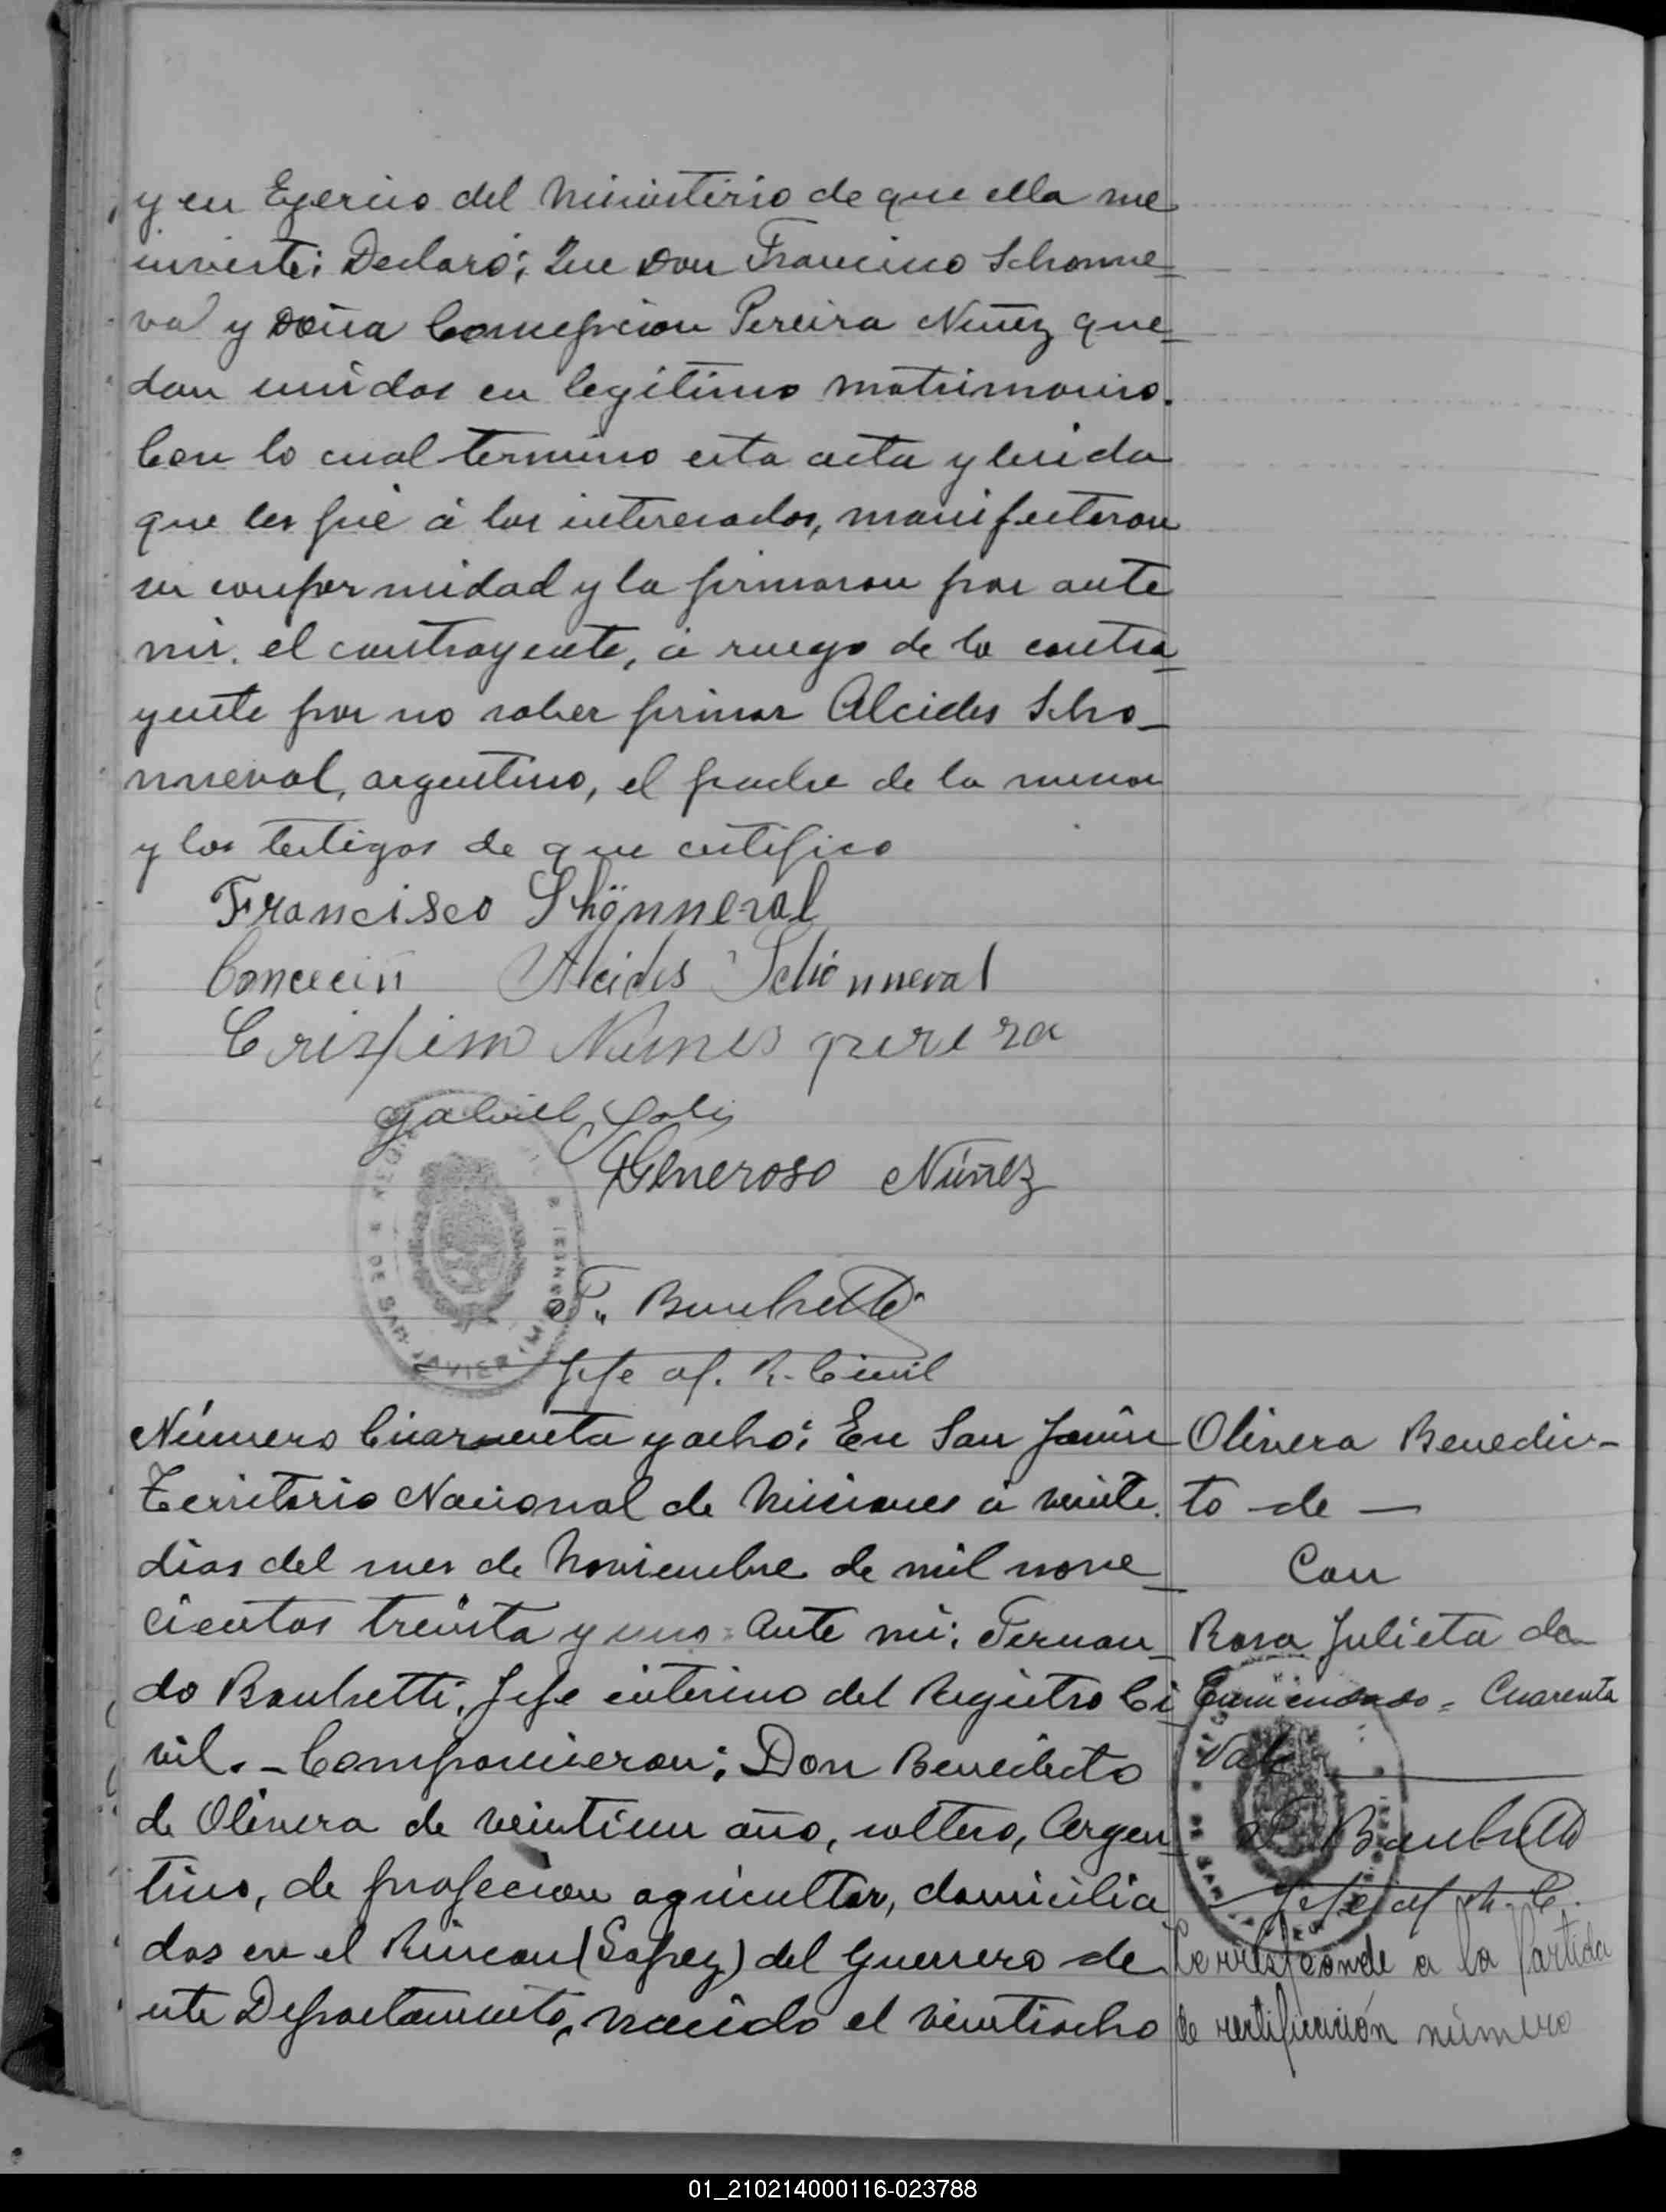 y en Ejercicio del Ministerio de que ella me
inviste: Declaro; Que Don Francisco Schonne-
val y Doña Concepcion Pereira Nuñez que-
dan unidos en legitimo matrimonio.
Con lo cual termino esta acta y leida
que les fué á los interesados, manifestaron
su conformidad y la firmaron por ante
mi. el contrayente, á ruego de la contra-
yente por no saber firmar Alcides Scho-
nneval, argentino, el padre de la menor
y los testigos de que certifico
Francisco Shönneval
Alcides Schönneval
Crispim Nunes perera
Gabriel Solis
Generoso Núñez
DE SAN JAVIER
F. Banchetti
Jefe of. R. Civil
Número Cuarenta y ocho: En San Javier
Territorio Nacional de Misiones á veinte
dias del mes de Noviembre de mil nove-
cientos treinta y uno = ante mi: Fernan-
do Banchetti, Jefe interino del Registro Ci-
vil. - Comparecieron: Don Benedicto
de Olivera de veintiun año, soltero, Argen-
tino, de profecion agricultor, domicilia
dos en el Rincon (Lopez) del Guerrero de
este Departamento, nacido el veintiocho
Olivera Benedic-
to de —
Con
Rosa Julieta da
Enmendado = Cuarenta
Vale
F. Banchetti
Jefe of R. C.
Corresponde a la Partida
de rectificación número
01_210214000116-023788